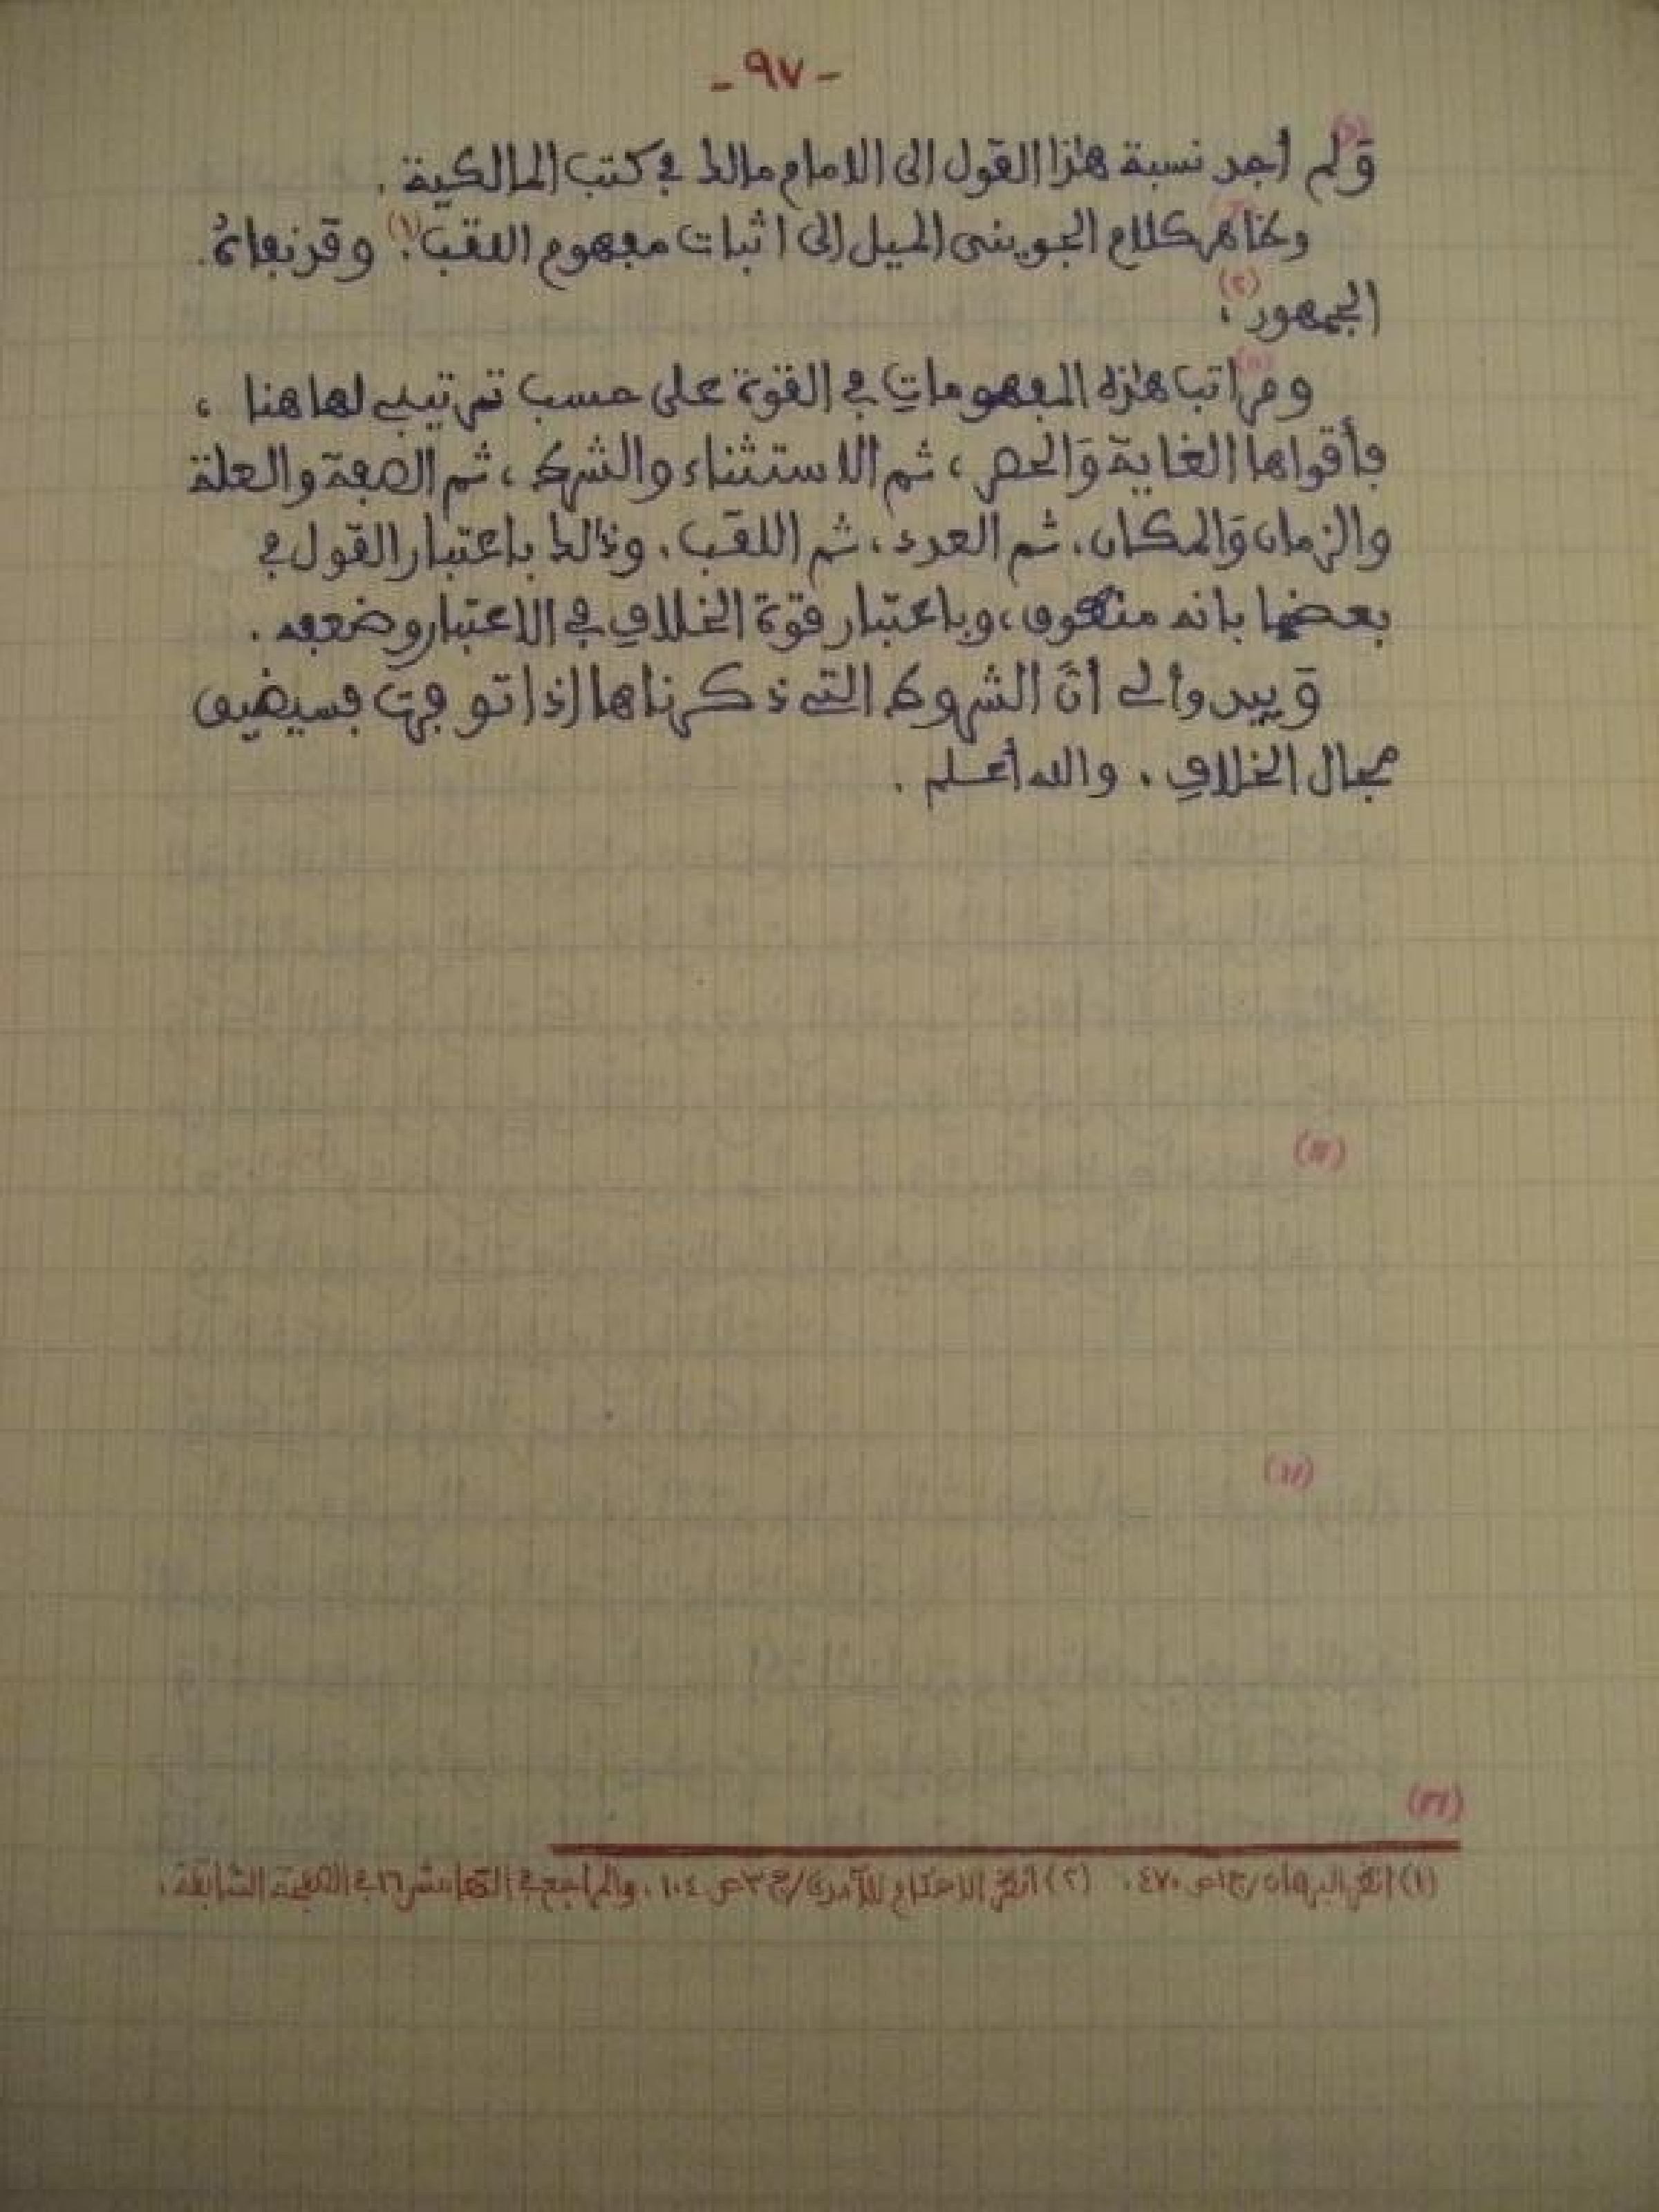 - ٩٧ -
ولم أجد نسبة هذا القول إلى الامام مالك في كتب المالكية .
وظاهر كلام الجويني الميل إلى اثبات مفهوم اللقب (١) . وقد نفاهُ
الجمهور (٢) .
ومراتب هذه المفهومات في القوة على حسب ترتيبي لها هنا ،
فأقواها الغاية وَالحصر ، ثم الاستثناء والشرط ، ثم الصفة والعلة
والزمان وَالمكان ، ثم العدد ، ثم اللقب . وذلك باعتبار القول في
بعضها بانه منطوق ، وباعتبار قوة الخلاف في الاعتبار وضعفه .
وَيبدو لي أنَّ الشروط التي ذكرناها إذا توفرت فسيضيق
مجال الخلاف . والله أعلم .
(١) انظر البرهان/ج١ص ٤٧٠ . (٢) انظر الاحكام للآمدي/ج٣ص ١٠٤ ، والمراجع في الهامش ٦ في الصفحة السابقة .